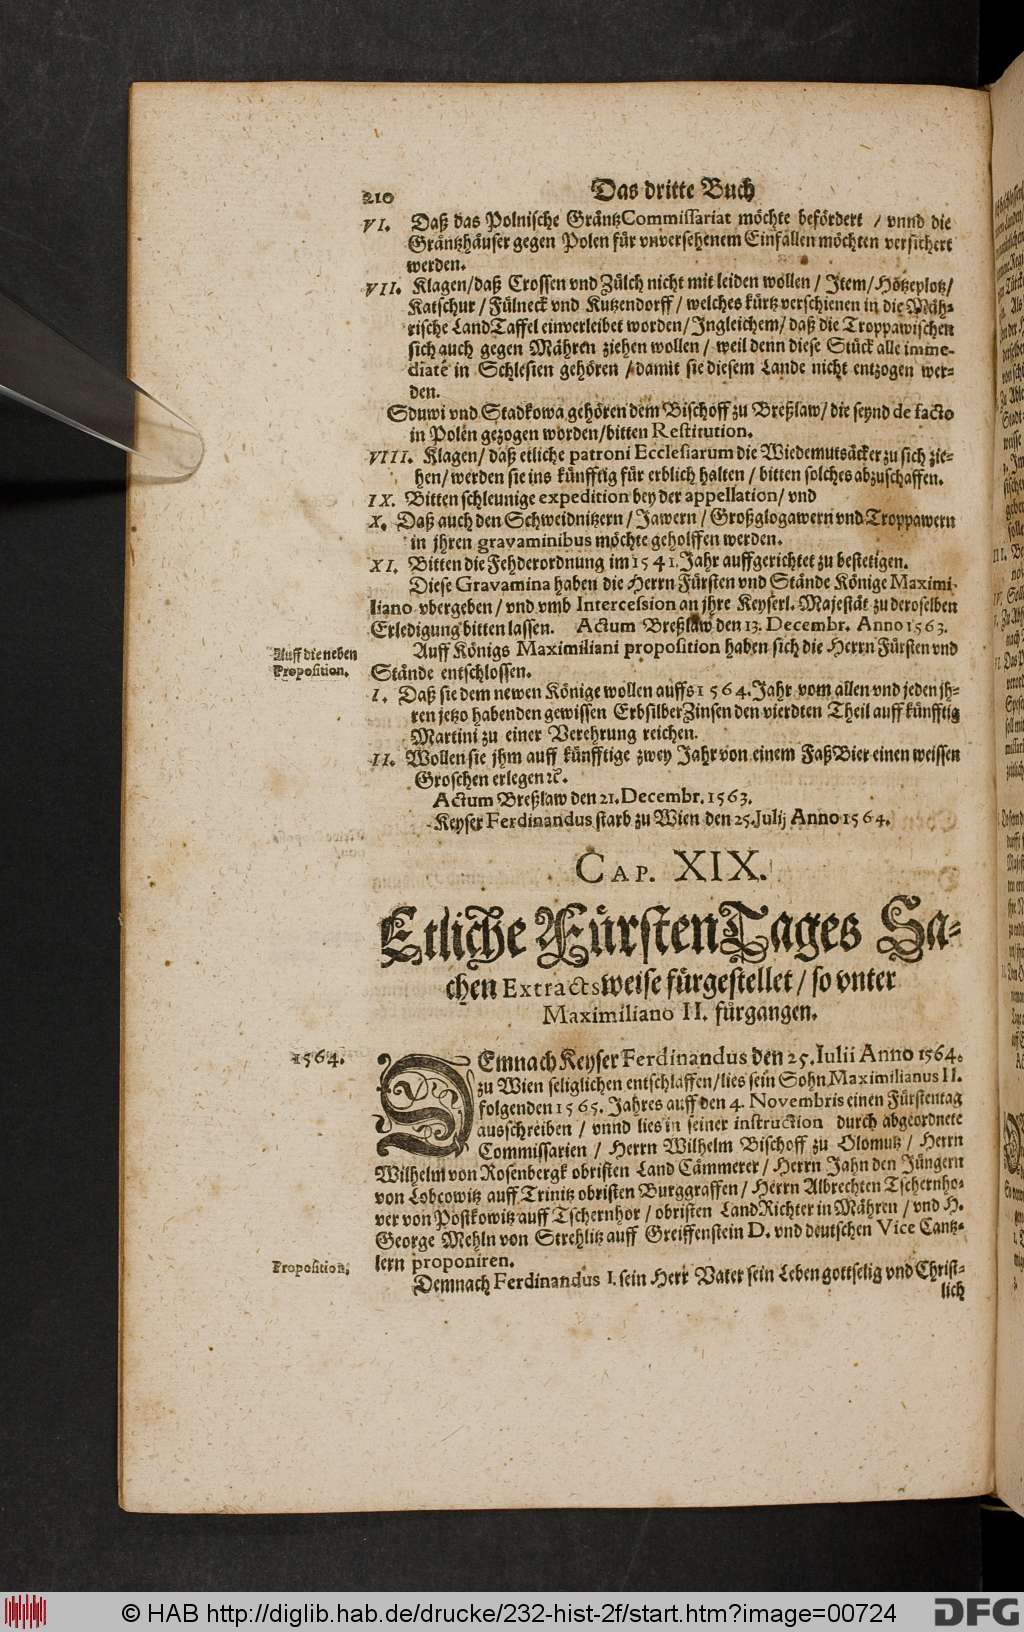 210 Das dritte Buch
VI. Daß das Polnische GräntzCommissariat möchte befördert / vnnd die
Gräntzhäuser gegen Polen für vnversehenem Einfallen möchten versichert
werden.
VII. Klagen/daß Crossen vnd Zülch nicht mit leiden wollen / Item/Hötzeplotz/
Katschur / Fülneck vnd Kutzendorff / welches kürtz verschienen in die Mäh-
rische LandTaffel einverleibet worden/Ingleichem/ daß die Troppawischen
sich auch gegen Mähren ziehen wollen / weil denn diese Stück alle imme-
diatè in Schlesien gehören /damit sie diesem Lande nicht entzogen wer-
den.
Sduwi vnd Stadkowa gehören dem Bischoff zu Breßlaw/ die seynd de facto
in Polen gezogen worden/bitten Restitution.
VIII. Klagen/ daß etliche patroni Ecclesiarum die Wiedemutsäcker zu sich zie-
hen/werden sie ins künfftig für erblich halten / bitten solches abzuschaffen.
IX. Bitten schleunige expedition bey der appellation/ vnd
X. Daß auch den Schweidnitzern / Jawern / Großglogawern vnd Troppawern
in jhren gravaminibus möchte geholffen werden.
XI. Bitten die Fehderordnung im 1541. Jahr auffgerichtet zu bestetigen.
Diese Gravamina haben die Herrn Fürsten vnd Stände Könige Maximi-
liano vbergeben / vnd vmb Intercession an jhre Keyserl. Majestät zu deroselben
Erledigung bitten lassen. Actum Breßlaw den 13. Decembr. Anno 1563.
Auff die neben
Proposition.
Auff Königs Maximiliani proposition haben sich die Herrn Fürsten vnd
Stände entschlossen.
I. Daß sie dem newen Könige wollen auffs 1564. Jahr vom allen vnd jeden jh-
ren jetzo habenden gewissen ErbsilberZinsen den vierdten Theil auff künfftig
Martini zu einer Verehrung reichen.
II. Wollen sie jhm auff künfftige zwey Jahr von einem Faß Bier einen weissen
Groschen erlegen ꝛc.
Actum Breßlaw den 21. Decembr. 1563.
Keyser Ferdinandus starb zu Wien den 25. Julij Anno 1564.
CAP. XIX.
Etliche FürstenTages Sa-
chen Extractsweise fürgestellet / so vnter
Maximiliano II. fürgangen.
1564.
DEmnach Keyser Ferdinandus den 25. Iulii Anno 1564.
zu Wien seliglichen entschlaffen/lies sein Sohn Maximilianus II.
folgenden 1565. Jahres auff den 4. Novembris einen Fürstentag
ausschreiben / vnnd lies in seiner instruction durch abgeordnete
Commissarien / Herrn Wilhelm Bischoff zu Olomutz / Herrn
Wilhelm von Rosenbergk obristen Land Cämmerer / Herrn Jahn den Jüngern
von Lobcowitz auff Trinitz obristen Burggraffen / Herrn Albrechten Tschernho-
ver von Postkowitz auff Tschernhor / obristen LandRichter in Mähren / vnd H.
George Mehln von Strehlitz auff Greiffenstein D. vnd deutschen Vice Cantz-
lern proponiren.
Proposition.
Demnach Ferdinandus I. sein Herr Vater sein Leben gottselig vnd Christ-
lich
© HAB http://diglib.hab.de/drucke/232-hist-2f/start.htm?image=00724
DFG